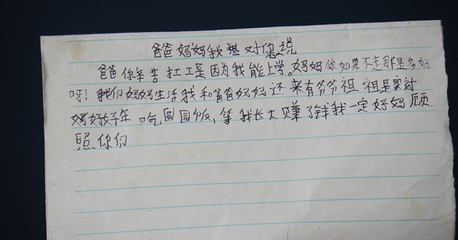 爸爸妈妈我想对您说
爸爸你辛苦扛工是因为我能上学。妈妈你如果不走那是多好
呀！我们好好生活我和爸爸妈妈还来有爷爷祖祖是
好好年吃团园饭，等我长大赚了钱我一定好妈顾
照你们